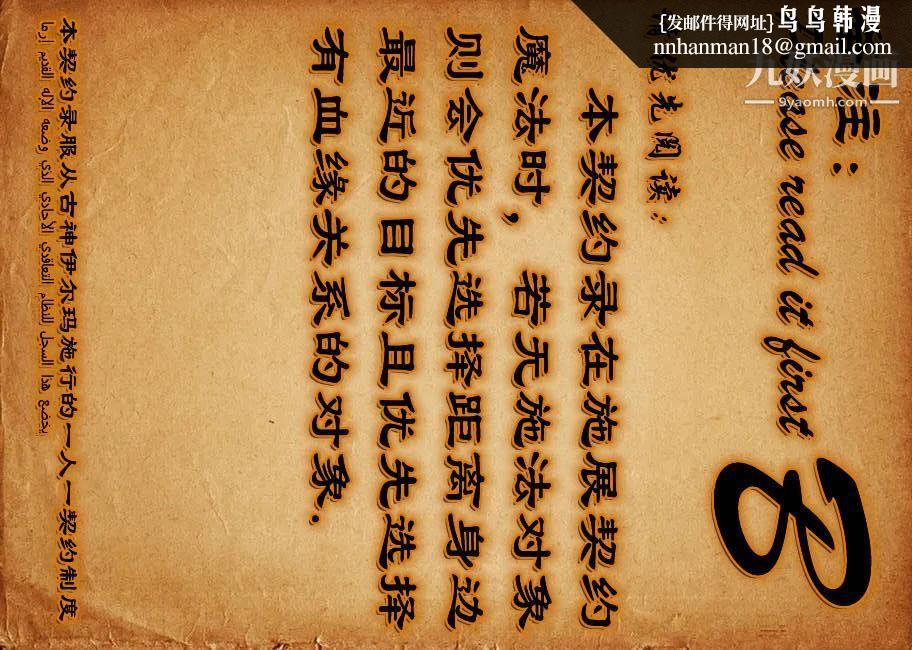 [发邮件得网址] 鸟鸟韩漫
nnhanman18@gmail.com
九妖漫画
9yaomh.com
注:
read it first
优先阅读:
本契约录在施展契约
魔法时，若无施法对象
则会优先选择距离身边
最近的目标且优先选择
有血缘关系的对象.
本契约录服从古神伊尔玛施行的一人一契约制度
يخضع هذا السجل للنظام التعاقدي الأحادي الذي وضعه الإله القديم إرما